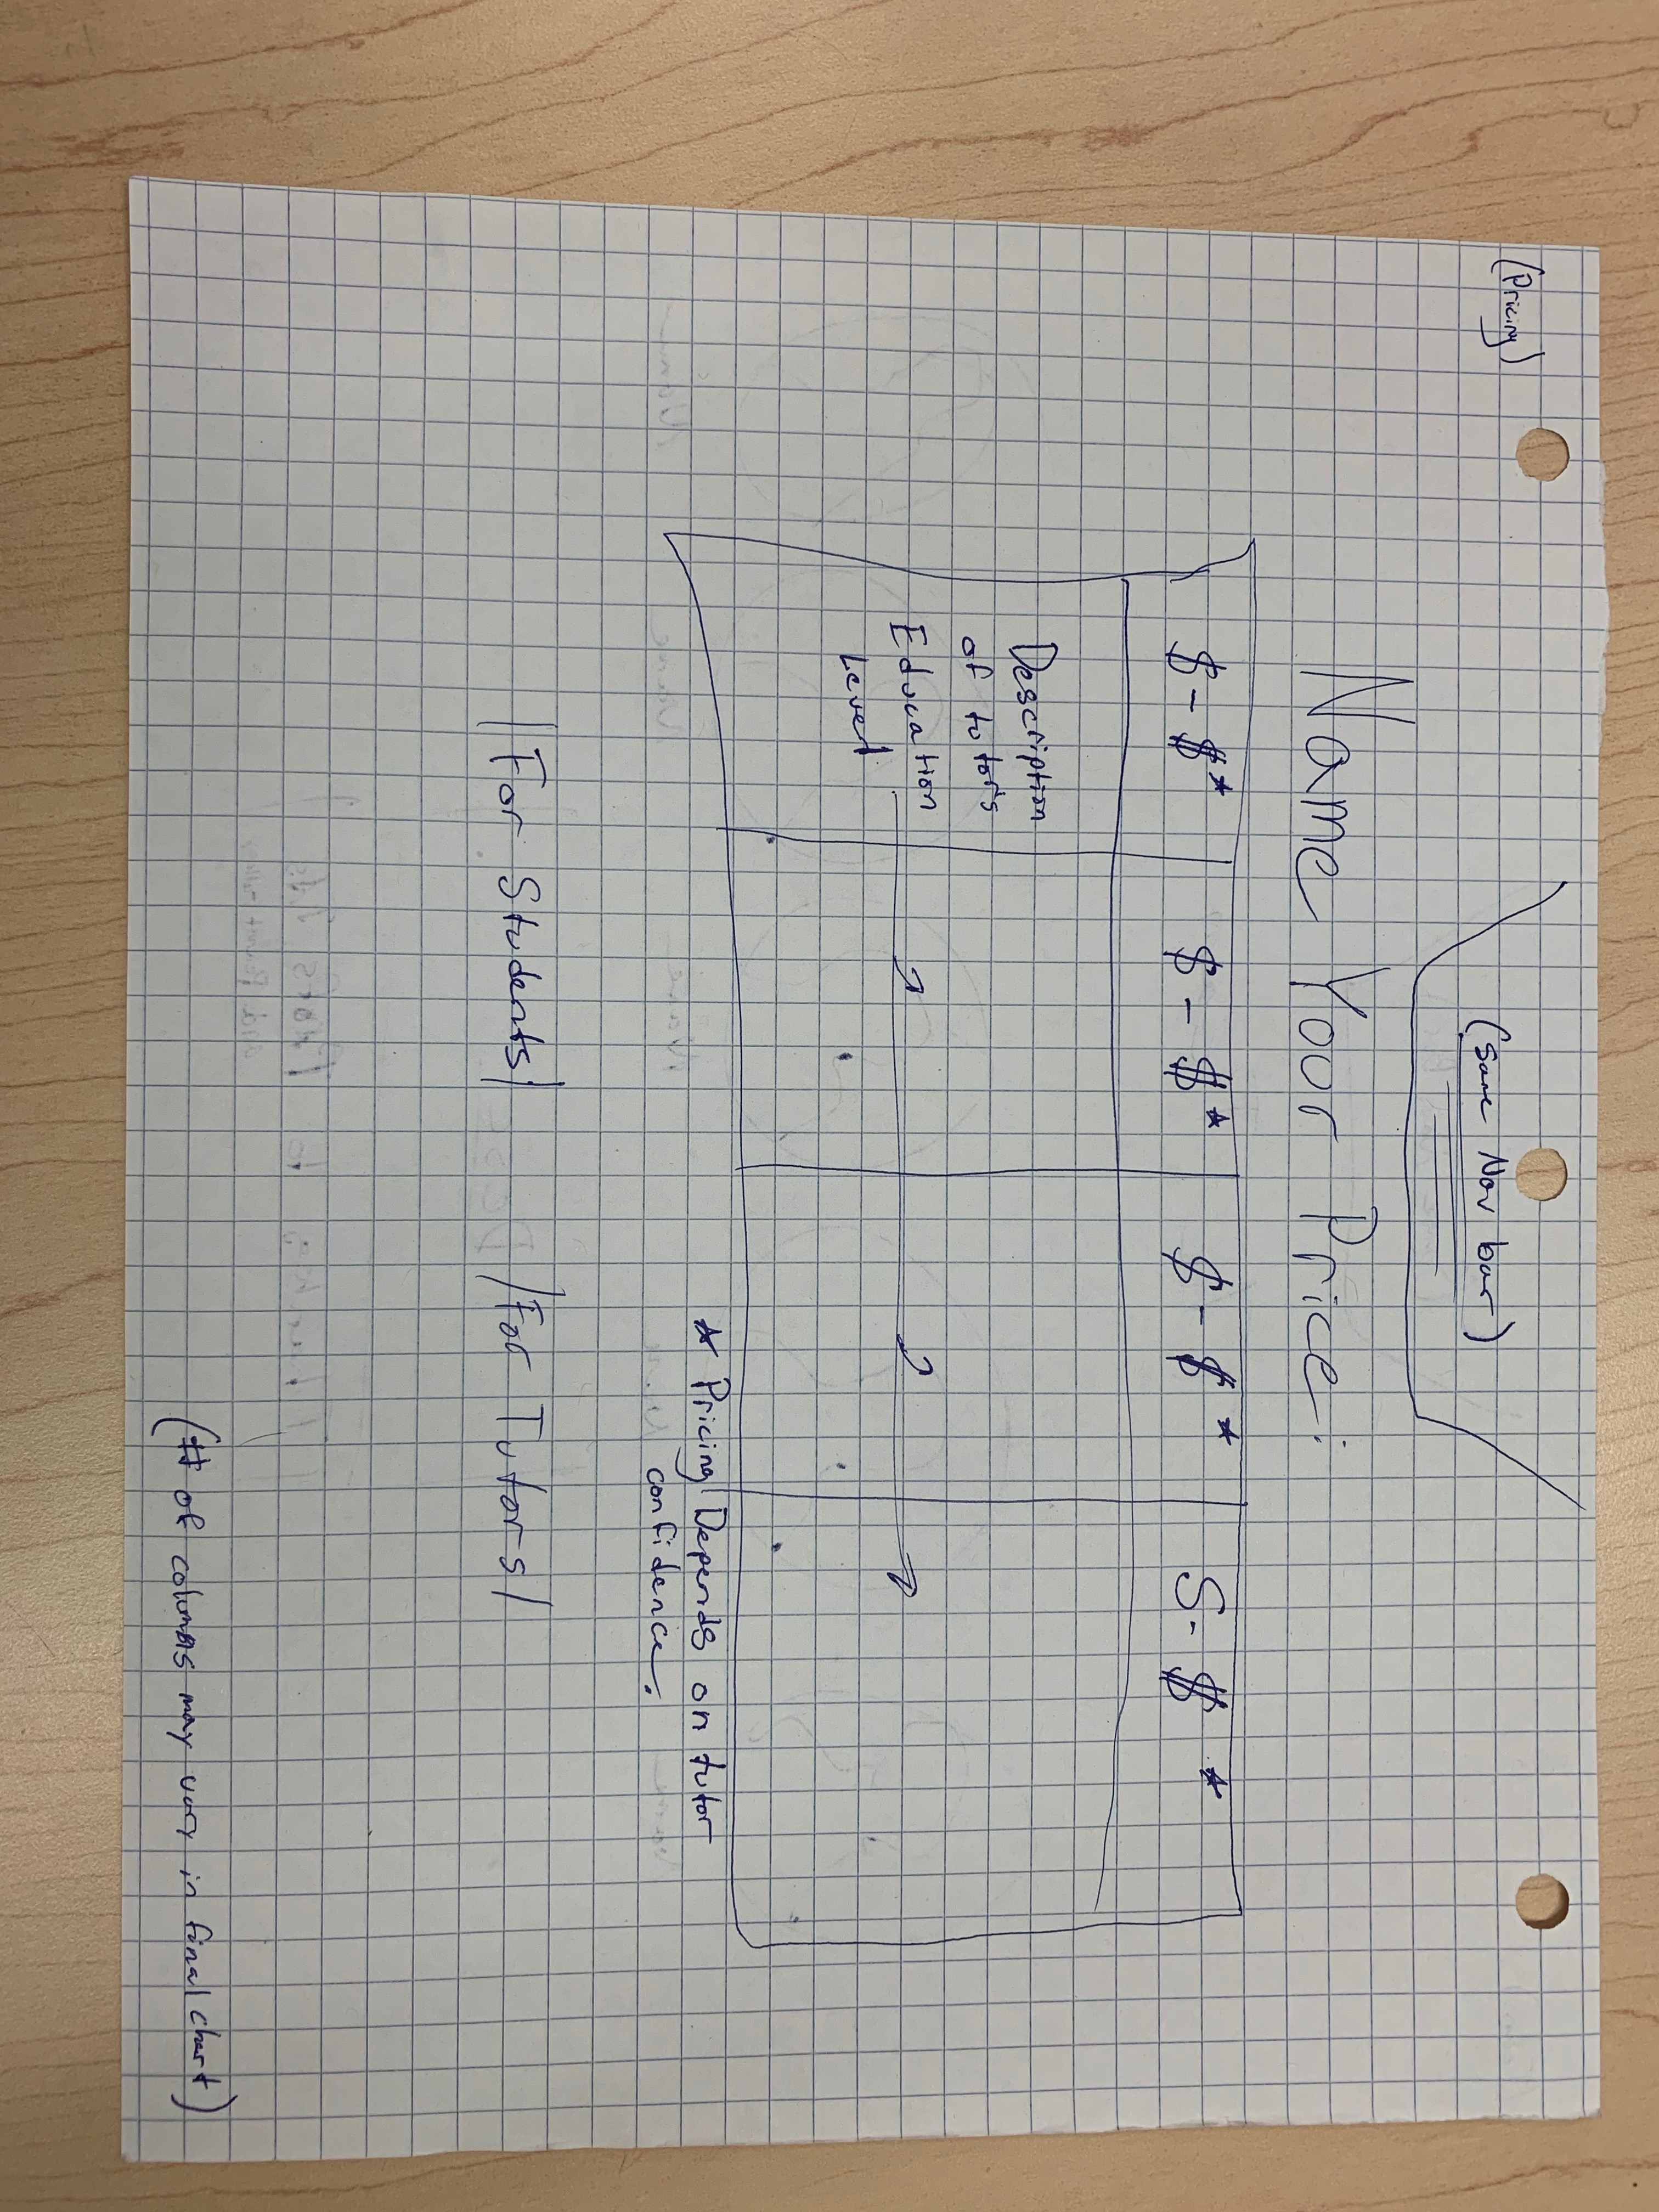 (Pricing)
(same Nav bar)
Name Your Price:
$ - $*
$ - $*
$ - $*
$ - $*
Description
of tutor's
Education
Level
* Pricing Depends on tutor
confidence.
|For Students|
|For Tutors|
(# of columns may vary in final chart)